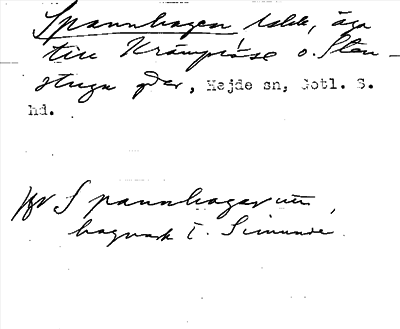 Spannhagen
till Krämpröse o. Sten-
stugu gdar, Hejde sn, Gotl. S.
hd.
Jfr Spannhagar
hagmark i Simunde.